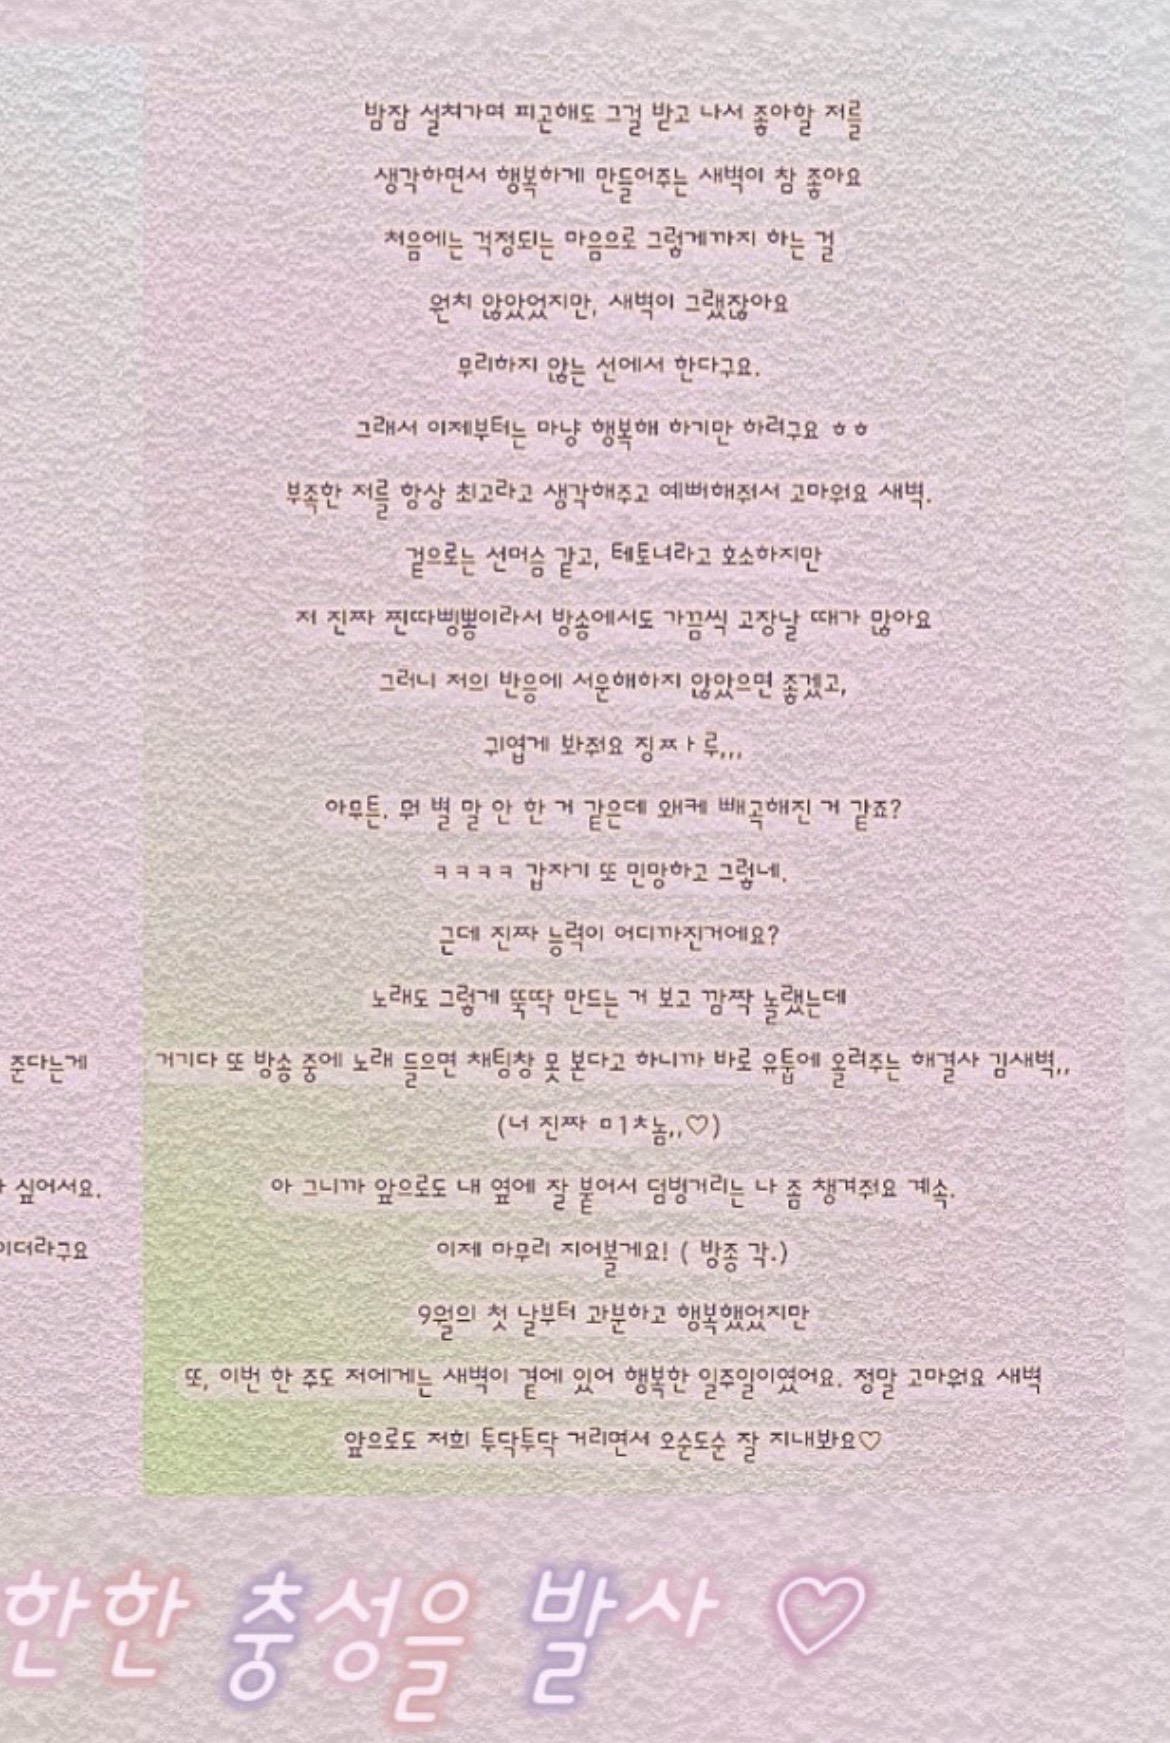 밤잠 설쳐가며 피곤해도 그걸 받고 나서 좋아할 저를
생각하면서 행복하게 만들어주는 새벽이 참 좋아요
처음에는 걱정되는 마음으로 그렇게까지 하는 걸
원치 않았었지만, 새벽이 그랬잖아요
무리하지 않는 선에서 한다구요.
그래서 이제부터는 마냥 행복해 하기만 하려구요 ㅎㅎ
부족한 저를 항상 최고라고 생각해주고 예뻐해줘서 고마워요 새벽.
겉으로는 선머슴 같고, 테토녀라고 호소하지만
저 진짜 찐따삥뽕이라서 방송에서도 가끔씩 고장날 때가 많아요
그러니 저의 반응에 서운해하지 않았으면 좋겠고,
귀엽게 봐줘요 징ㅉㅏ루,,,
아무튼. 뭐 별 말 안 한 거 같은데 왜케 빼곡해진 거 같죠?
ㅋㅋㅋㅋ 갑자기 또 민망하고 그렇네.
근데 진짜 능력이 어디까진거에요?
노래도 그렇게 뚝딱 만드는 거 보고 깜짝 놀랬는데
준다는게
거기다 또 방송 중에 노래 들으면 채팅창 못 본다고 하니까 바로 유튭에 올려주는 해결사 김새벽,,
(너 진짜 ㅁ1ㅊ놈,,♡)
싶어서요.
아 그니까 앞으로도 내 옆에 잘 붙어서 덤벙거리는 나 좀 챙겨줘요 계속.
이더라구요
이제 마무리 지어볼게요! ( 방종 각.)
9월의 첫 날부터 과분하고 행복했었지만
또, 이번 한 주도 저에게는 새벽이 곁에 있어 행복한 일주일이였어요. 정말 고마워요 새벽
앞으로도 저희 투닥투닥 거리면서 오순도순 잘 지내봐요♡
한한 충성을 발사 ♡